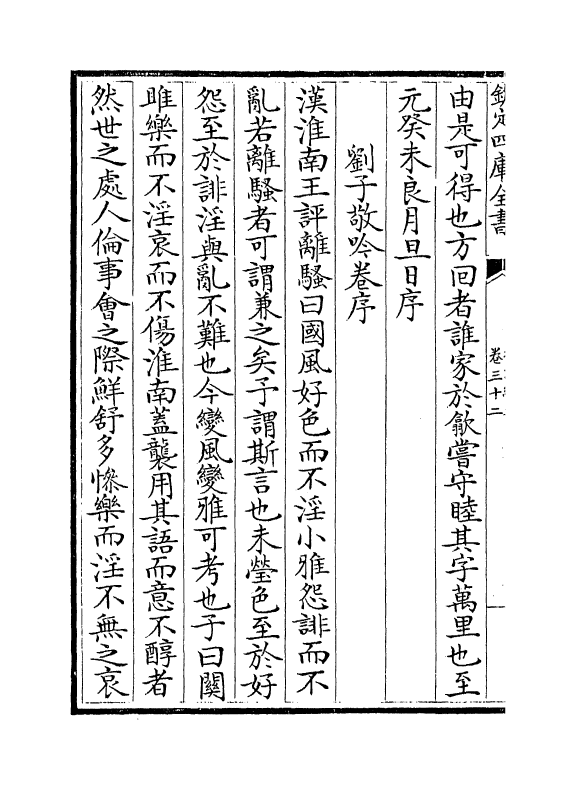 欽定四庫全書
卷三十二
由是可得也方囘者誰家於歙嘗守睦其字萬里也至
元癸未良月旦日序
劉子敬吟卷序
漢淮南王評離騷曰國風好色而不淫小雅怨誹而不
亂若離騷者可謂兼之矣予謂斯言也未瑩色至於好
怨至於誹淫與亂不難也今變風變雅可考也子曰關
雎樂而不淫哀而不傷淮南蓋襲用其語而意不醇者
然世之處人倫事會之際鮮舒多慘樂而淫不無之哀